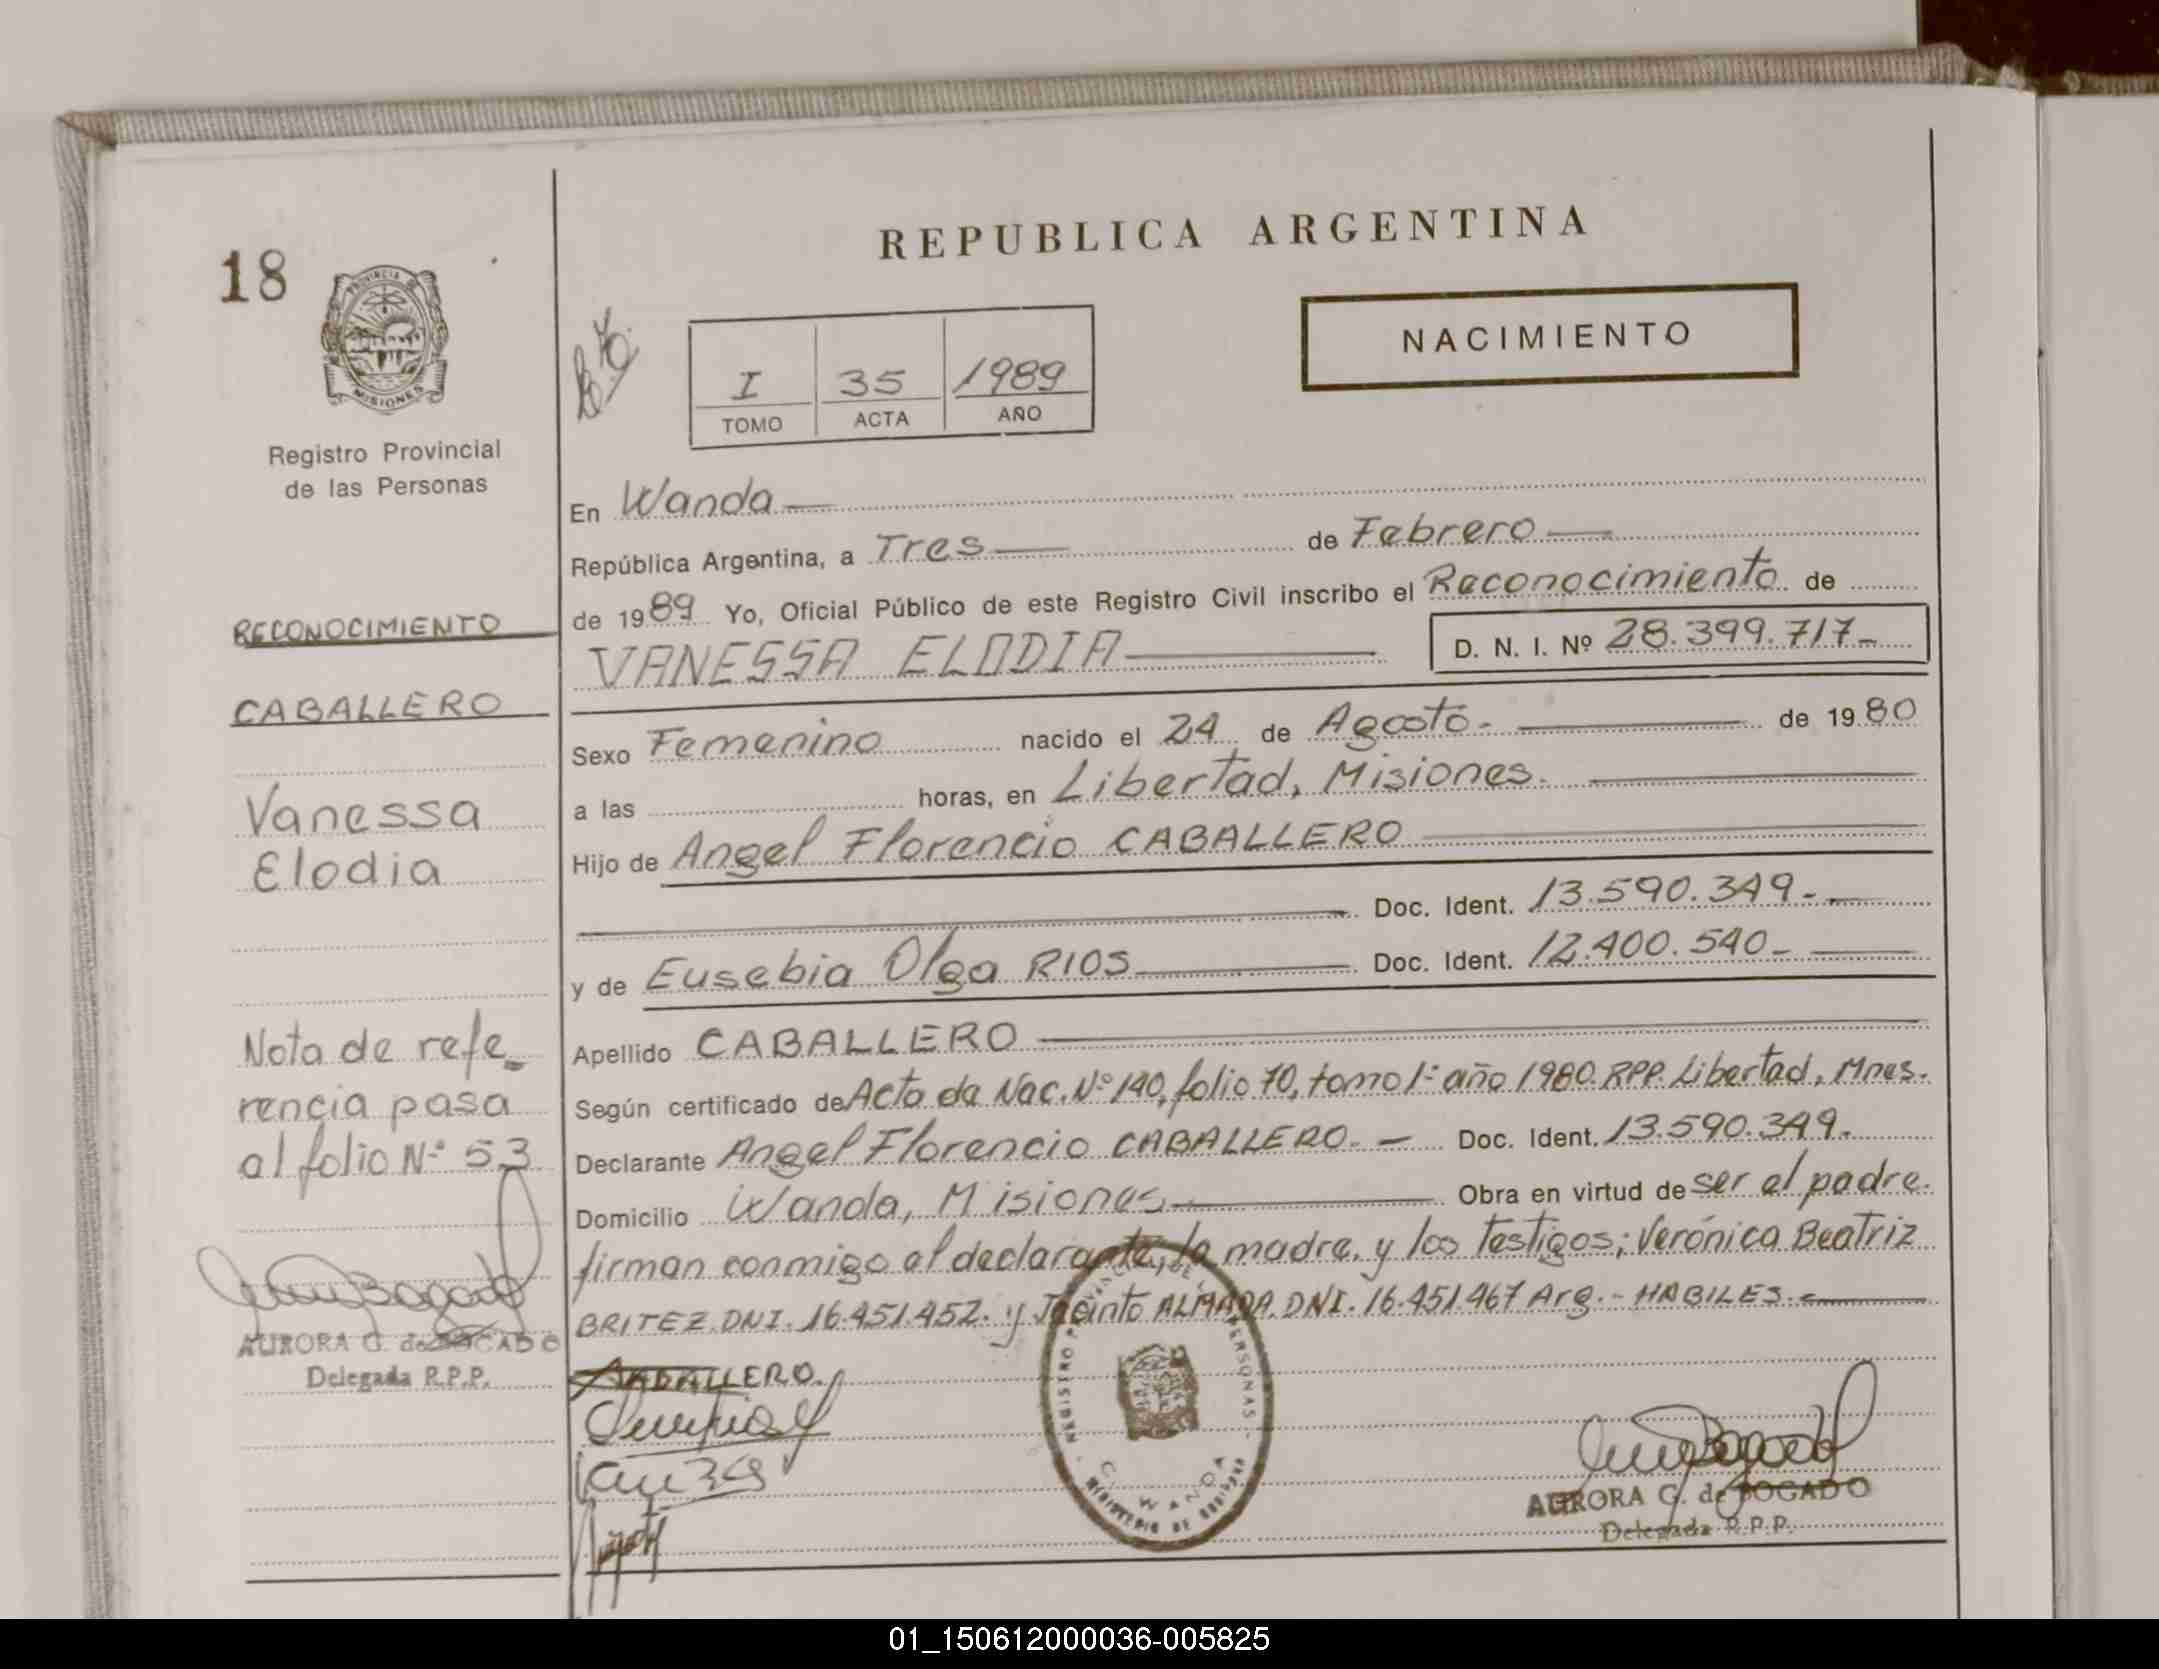 18
PROVINCIA DE
MISIONES
Registro Provincial
de las Personas
RECONOCIMIENTO
CABALLERO
Vanessa
Elodia
Nota de refe_
rencia pasa
al folio Nº 53
AURORA G. de BOGADO
Delegada R.P.P.
REPUBLICA ARGENTINA
NACIMIENTO
I 35 1989
TOMO ACTA AÑO
En Wanda
República Argentina, a Tres de Febrero
de 1989 Yo, Oficial Público de este Registro Civil inscribo el Reconocimiento de
VANESSA ELODIA D. N. I. Nº 28.399.717-
Sexo Femenino nacido el 24 de Agosto- de 1980
a las horas, en Libertad, Misiones.
Hijo de Angel Florencio CABALLERO
Doc. Ident. 13.590.349-
y de Eusebia Olga RIOS Doc. Ident. 12.400.540-
Apellido CABALLERO
Según certificado de Acta de Nac. Nº 140, folio 70, tomo 1º año 1980. RPP. Libertad, Mnes.
Declarante Angel Florencio CABALLERO. - Doc. Ident. 13.590.349.
Domicilio Wanda, Misiones Obra en virtud de ser el padre.
firman conmigo el declarante, la madre, y los testigos; Verónica Beatriz
BRITEZ DNI. 16.451.452. y Jacinto ALMADA. DNI. 16.451.467 Arg. - HABILES.
CABALLERO.
REGISTRO PROVINCIAL DE LAS PERSONAS
WANDA
MINISTERIO DE GOBIERNO
AURORA G. de BOGADO
Delegada R.P.P.
01_150612000036-005825